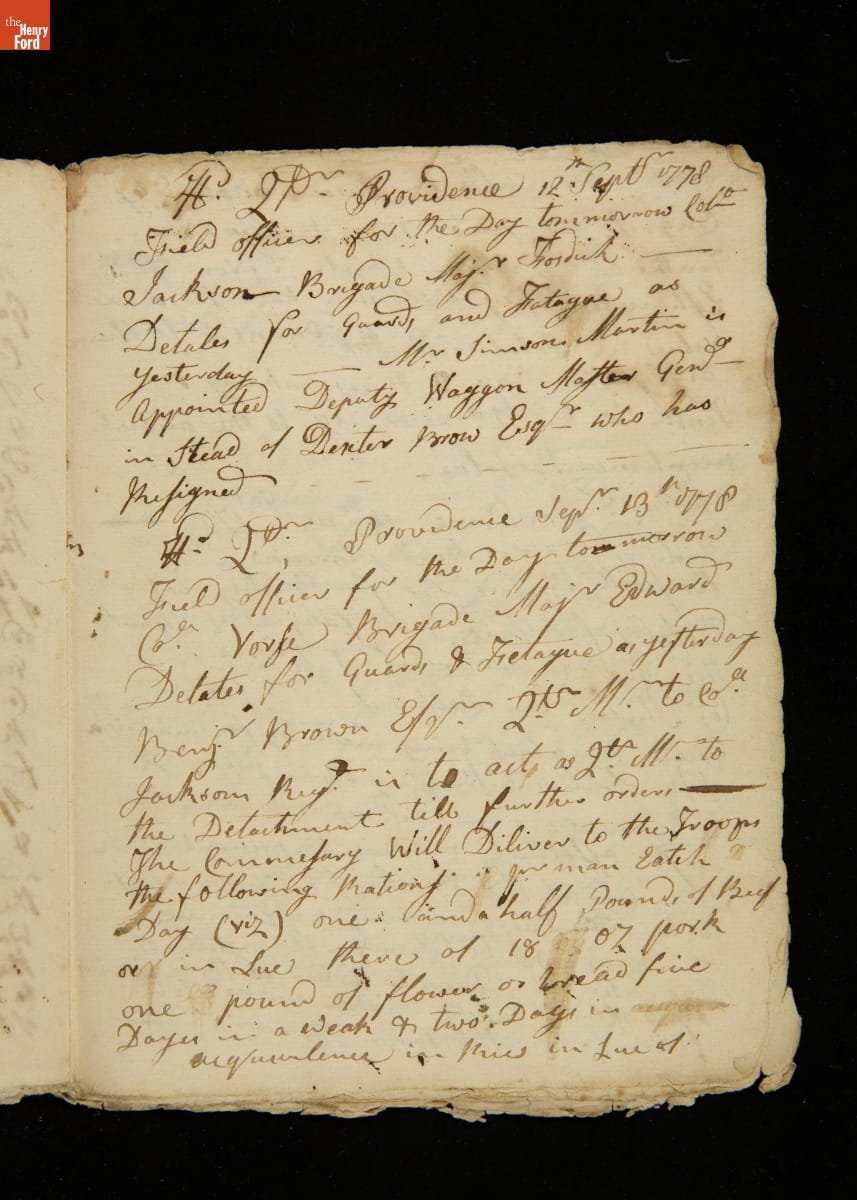 the
Henry
Ford
Hd. Qtrs. Providence 12th Septr 1778
Field officer for the Day tommorrow Colo
Jackson Brigade Majr. Fosdick
Detales for Guards and Fatague as
yesterday — Mr Simson Martin is
Appointed Deputy Waggon Master Genl
in Stead of Dexter Brow Esqr who has
Resigned
Hd. Qtrs. Providence Sepr 13th 1778
Field officer for the Day tommorrow
Col. Vorse Brigade Majr Edward
Detales for Guards & Fetague as yesterday
Benjr Brown Esqr. Qtr Mr to Col
Jackson Regt. is to act as Qtr Mr. to
the Detachment till further orders —
The Commesary Will Diliver to the Troops
the following Rations pr man Eatch
Day (viz) one and a half Pounds of Beef
or in Lue there of 18 oz pork
one pound of flower or bread five
Dayes in a weak & two Days in
acquvulence in Rice in Lue of